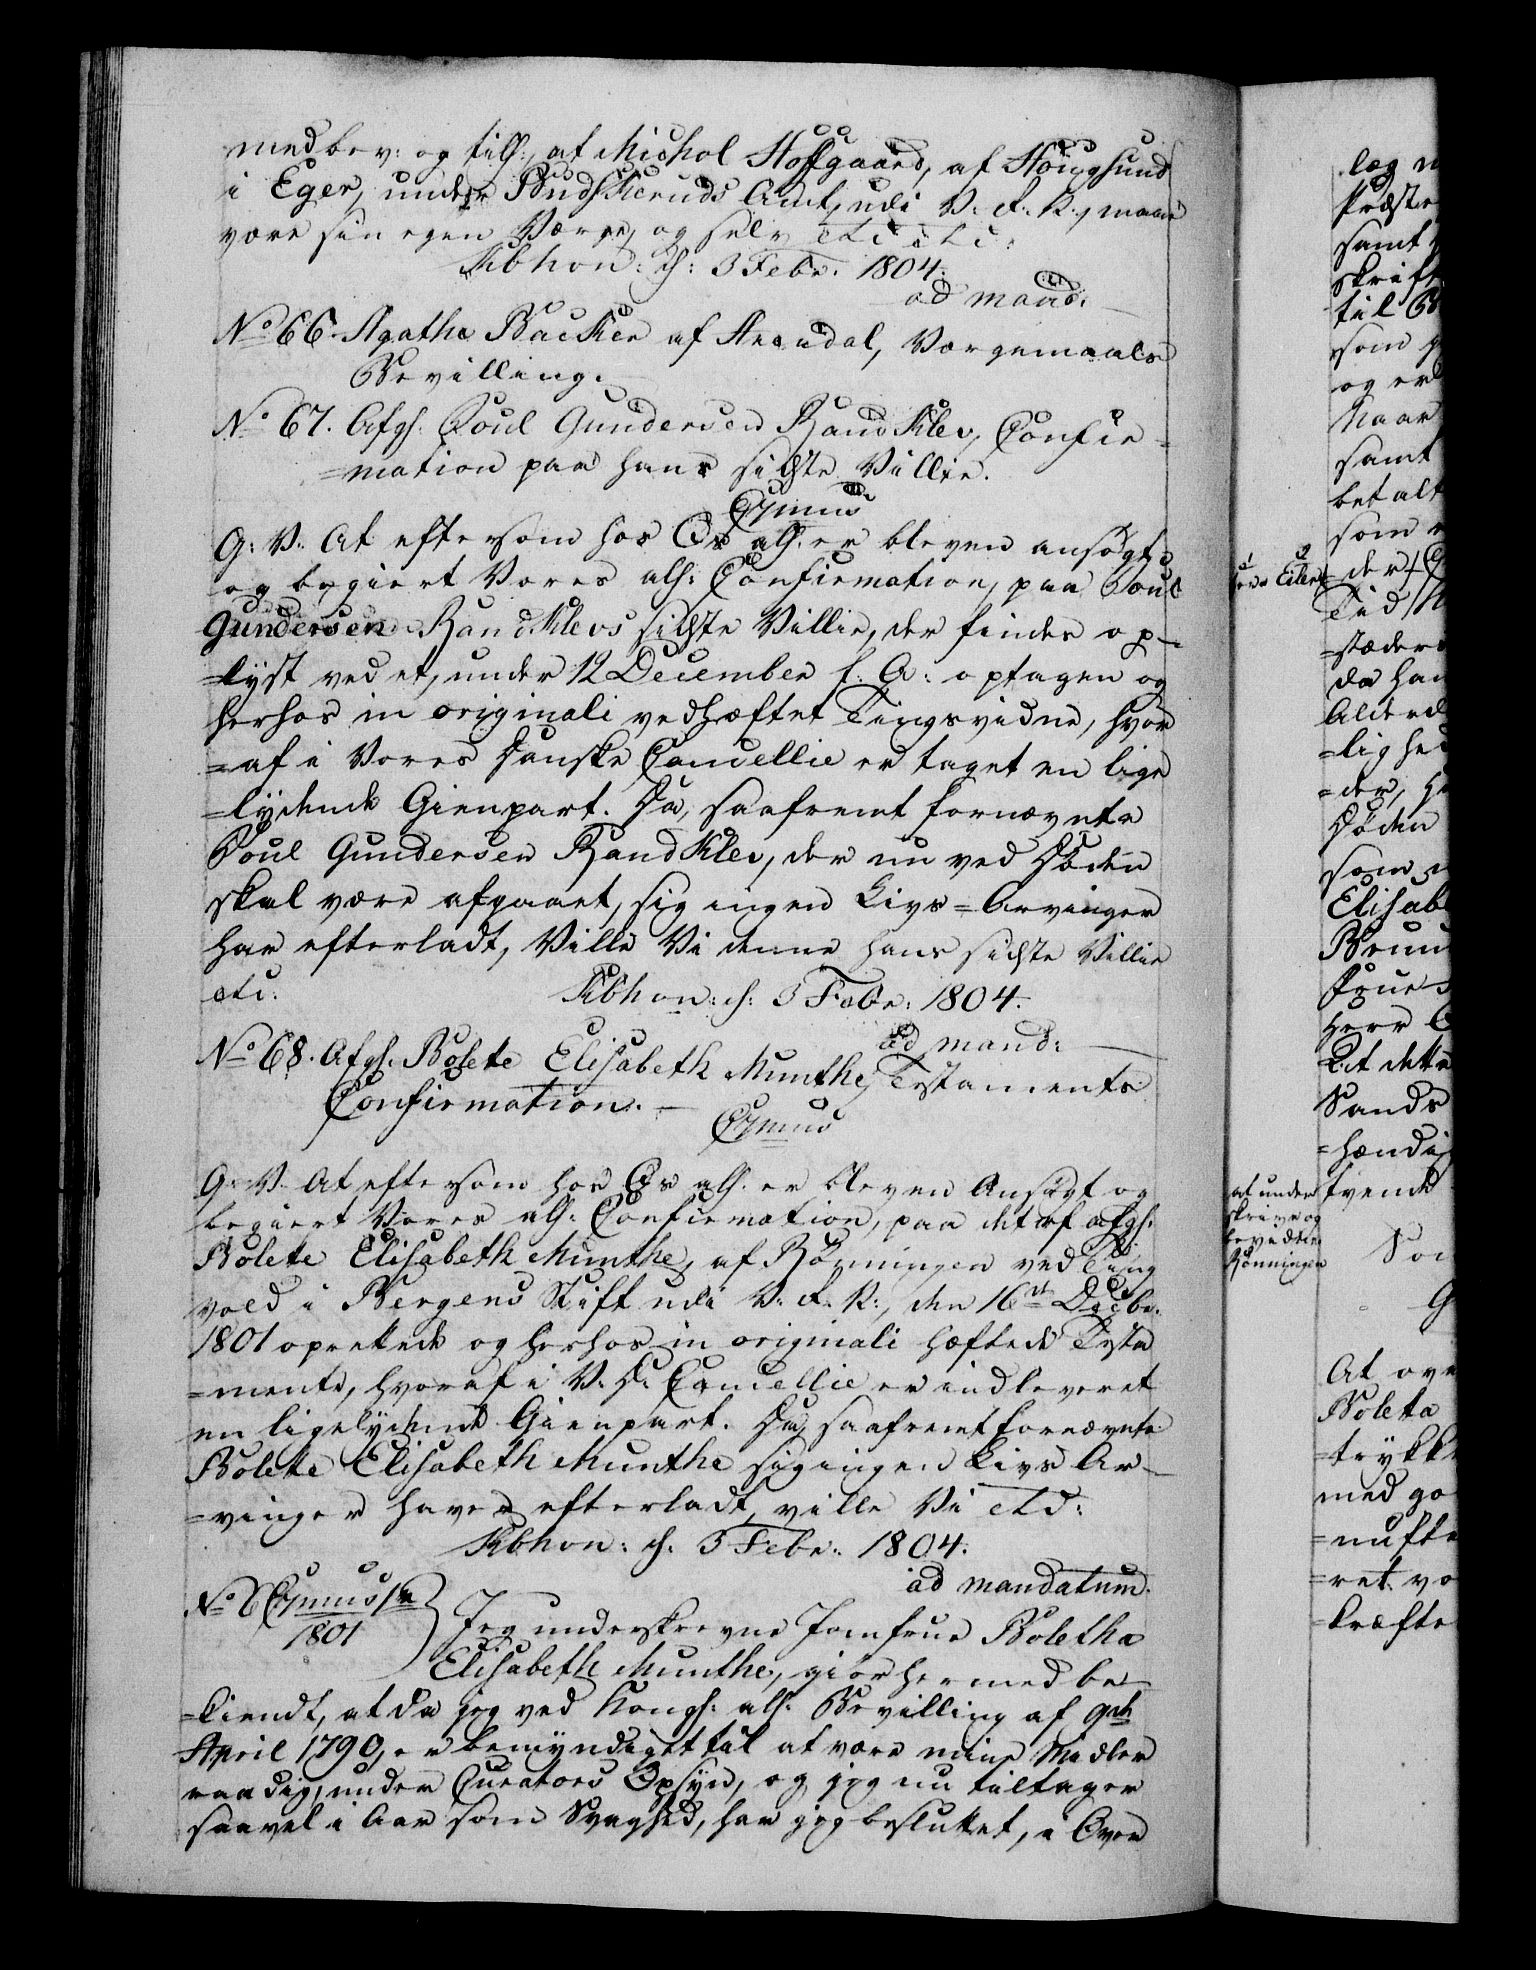 med bev: og till:, at Michol Hoffgaard, af Houghsund
i Eger, under Budskeruds Amt, udi V: R: N:, maae
være sin egen Værge, og selv etc: etc:
Kbhvn: d: 3 Febr: 1804.
ad mand:
No 66. Agathe Backer af Arendal, Værgemaals
Bevilling.
No 67. Afg: Poul Gundersen Randklev, Confir=
=mation paa hans sidste Villie.
G: V: At eftersom hos Os all: er bleven ansøgt
og begiert Vores all: Confirmation, paa Poul
Gundersen Randklevs sidste Villie, der findes op-
=lyst ved et, under 12 December f: A: optagen og
herhos in originali vedhæftet Tingsvidne, hvor
=af i Vores danske Cancellie er taget en lige
=lydende Gienpart. Da, saafremt fornævnte
Poul Gundersen Randklev, der nu ved Døden
skal være afgaaet, sig ingen Livs=Arvinger
har efterladt, Ville Vi denne hans sidste Villie
etc: Kbhvn: d: 3 Febr: 1804.
ad mand:
No 68. Afg: Bolete Elisabeth Munthe, Testaments
Confirmation.
G: V. At eftersom hos Os all: er bleven Ansøgt og
begiert Vores all: Confirmation, paa det af afg:
Bolete Elisabeth Munthe, af Rønningen ved Ting
vold i Bergens Stift udi V: R: N:, den 16de Decbr:
1801 oprettede og herhos in originali hæftede Testa
=mente, hvoraf i V: D: Cancellie er indleveret
en ligelydende Gienpart. Da, saafremt fornævnte
Bolette Elisabeth Munthe sig ingen Livs Ar-
=vinger haver efterladt, ville Vi etc:
Kbhvn: d: 3 Febr: 1804.
ad mandatum.
No 6
1801
Jeg underskrevne Jomfrue Boletha
Elisabeth Munthe, giør hermed be-
=kiendt, at da jeg ved Kongl: all: Bevilling af 9de
April 1790, er bemyndiget til at være mine Midler
raadig, under Curators Opsyn, og jeg nu tiltager
saavel i Aar som Svaghed, har jeg besluttet, i Over
Eilert
at under
skrive og
bevidne
Rønningen
læg
Præste
samt
skrift
til
som
og er
Naar
samt
betalt
som
der
Tid
=stæder
da han
Alder
=lighed
=der,
Døden
som
Elisab
Brun
Frue
Herr
Lit dette
Sands
=hændig
tvende
Son
G
At ove
Boleta
=trykk
med go
=nuft
=ret vo
kræfte